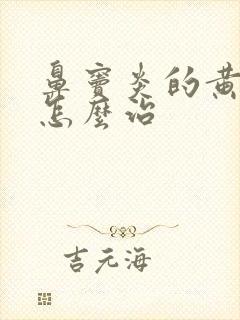 鼻窦炎的黄
怎麼治
吉元海